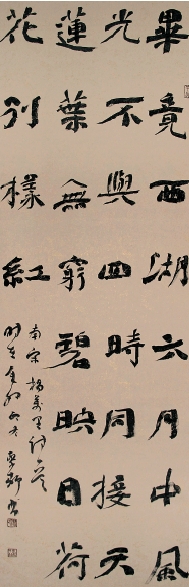 畢竟西湖六月中風
光不與四時同接天
蓮葉無窮碧映日荷
花別樣紅
南宋楊萬里詩